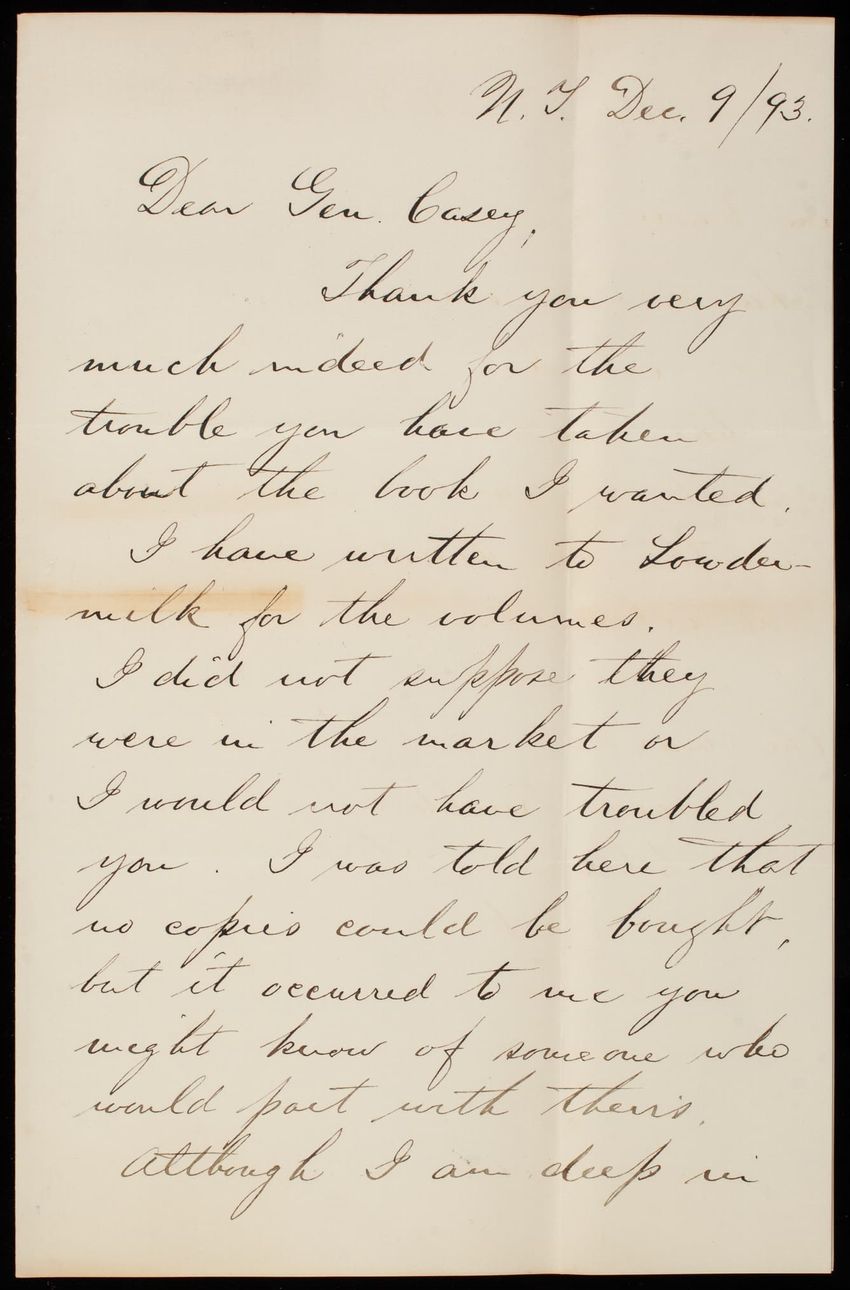 N.Y. Dec. 9/93.
Dear Gen. Casey,
Thank you very
much indeed for the
trouble you have taken
about the book I wanted.
I have written to Lowder-
milk for the volumes.
I did not suppose they
were in the market or
I would not have troubled
you. I was told here that
no copies could be bought,
but it occurred to me you
might know of someone who
would part with theirs.
Although I am deep in